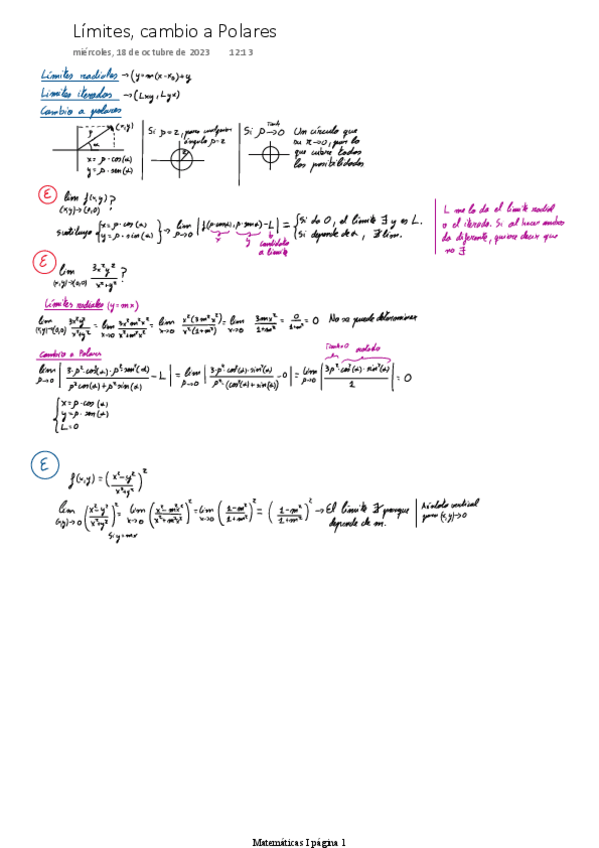 Límites, cambio a Polares
miércoles, 18 de octubre de 2023 12:13
Límites radiales → (y=m(x-x₀)+y
Límites iterados → (Lxy, Lyx)
Cambio a polares
(x,y)
ρ
α
x = ρ·cos(α)
y = ρ·sen(α)
Si ρ=2, para cualquier
ángulo ρ=2
Si ρ→0
Un círculo que
su r→0, por lo
que cubre todas
las posibilidades
E
lim f(x,y)?
(x,y)→(0,0)
sustituyo {x=ρ·cos(α) y=ρ·sin(α)} → lim ρ→0 |f(ρ·cos(α), ρ·sen(α))-L| = {Si da 0, el límite ∃ y es L.
Si depende de α, ∄ lim.
x y candidato
a límite
L me lo da el límite radial
o el iterado. Si al hacer ambos
da diferente, quiere decir que
no ∃
E
lim (x,y)→(0,0) 3x²y²/(x²+y²)?
Límites radiales (y=mx)
lim (x,y)→(0,0) 3x²y²/(x²+y²) = lim x→0 3x²m²x²/(x²+m²x²) = lim x→0 x²(3m²x²)/(x²(1+m²)) = lim x→0 3mx²/(1+m²) = 0/(1+m²) = 0 No se puede determinar
Cambio a Polares
Tiende=0 acotado
lim ρ→0 |3·ρ²·cos²(α)·ρ²sen²(α)/(ρ²cos(α)+ρ²sin(α)) - L| = lim ρ→0 |3·ρ²·cos²(α)·sin²(α)/(ρ²·(cos²(α)+sin(α))) - 0| = lim ρ→0 |3ρ²·cos²(α)·sin²(α)/1| = 0
x=ρ·cos(α)
y=ρ·sen(α)
L=0
E
f(x,y) = ((x²-y²)/(x²+y²))²
lim (x,y)→0 ((x²-y²)/(x²+y²))² = lim x→0 ((x²-m²x²)/(x²+m²x²))² = lim x→0 ((1-m²)/(1+m²))² = ((1-m²)/(1+m²))² → El límite ∄ porque
depende de m.
Si y=mx
Asíntota vertical
para (x,y)→0
Matemáticas I página 1